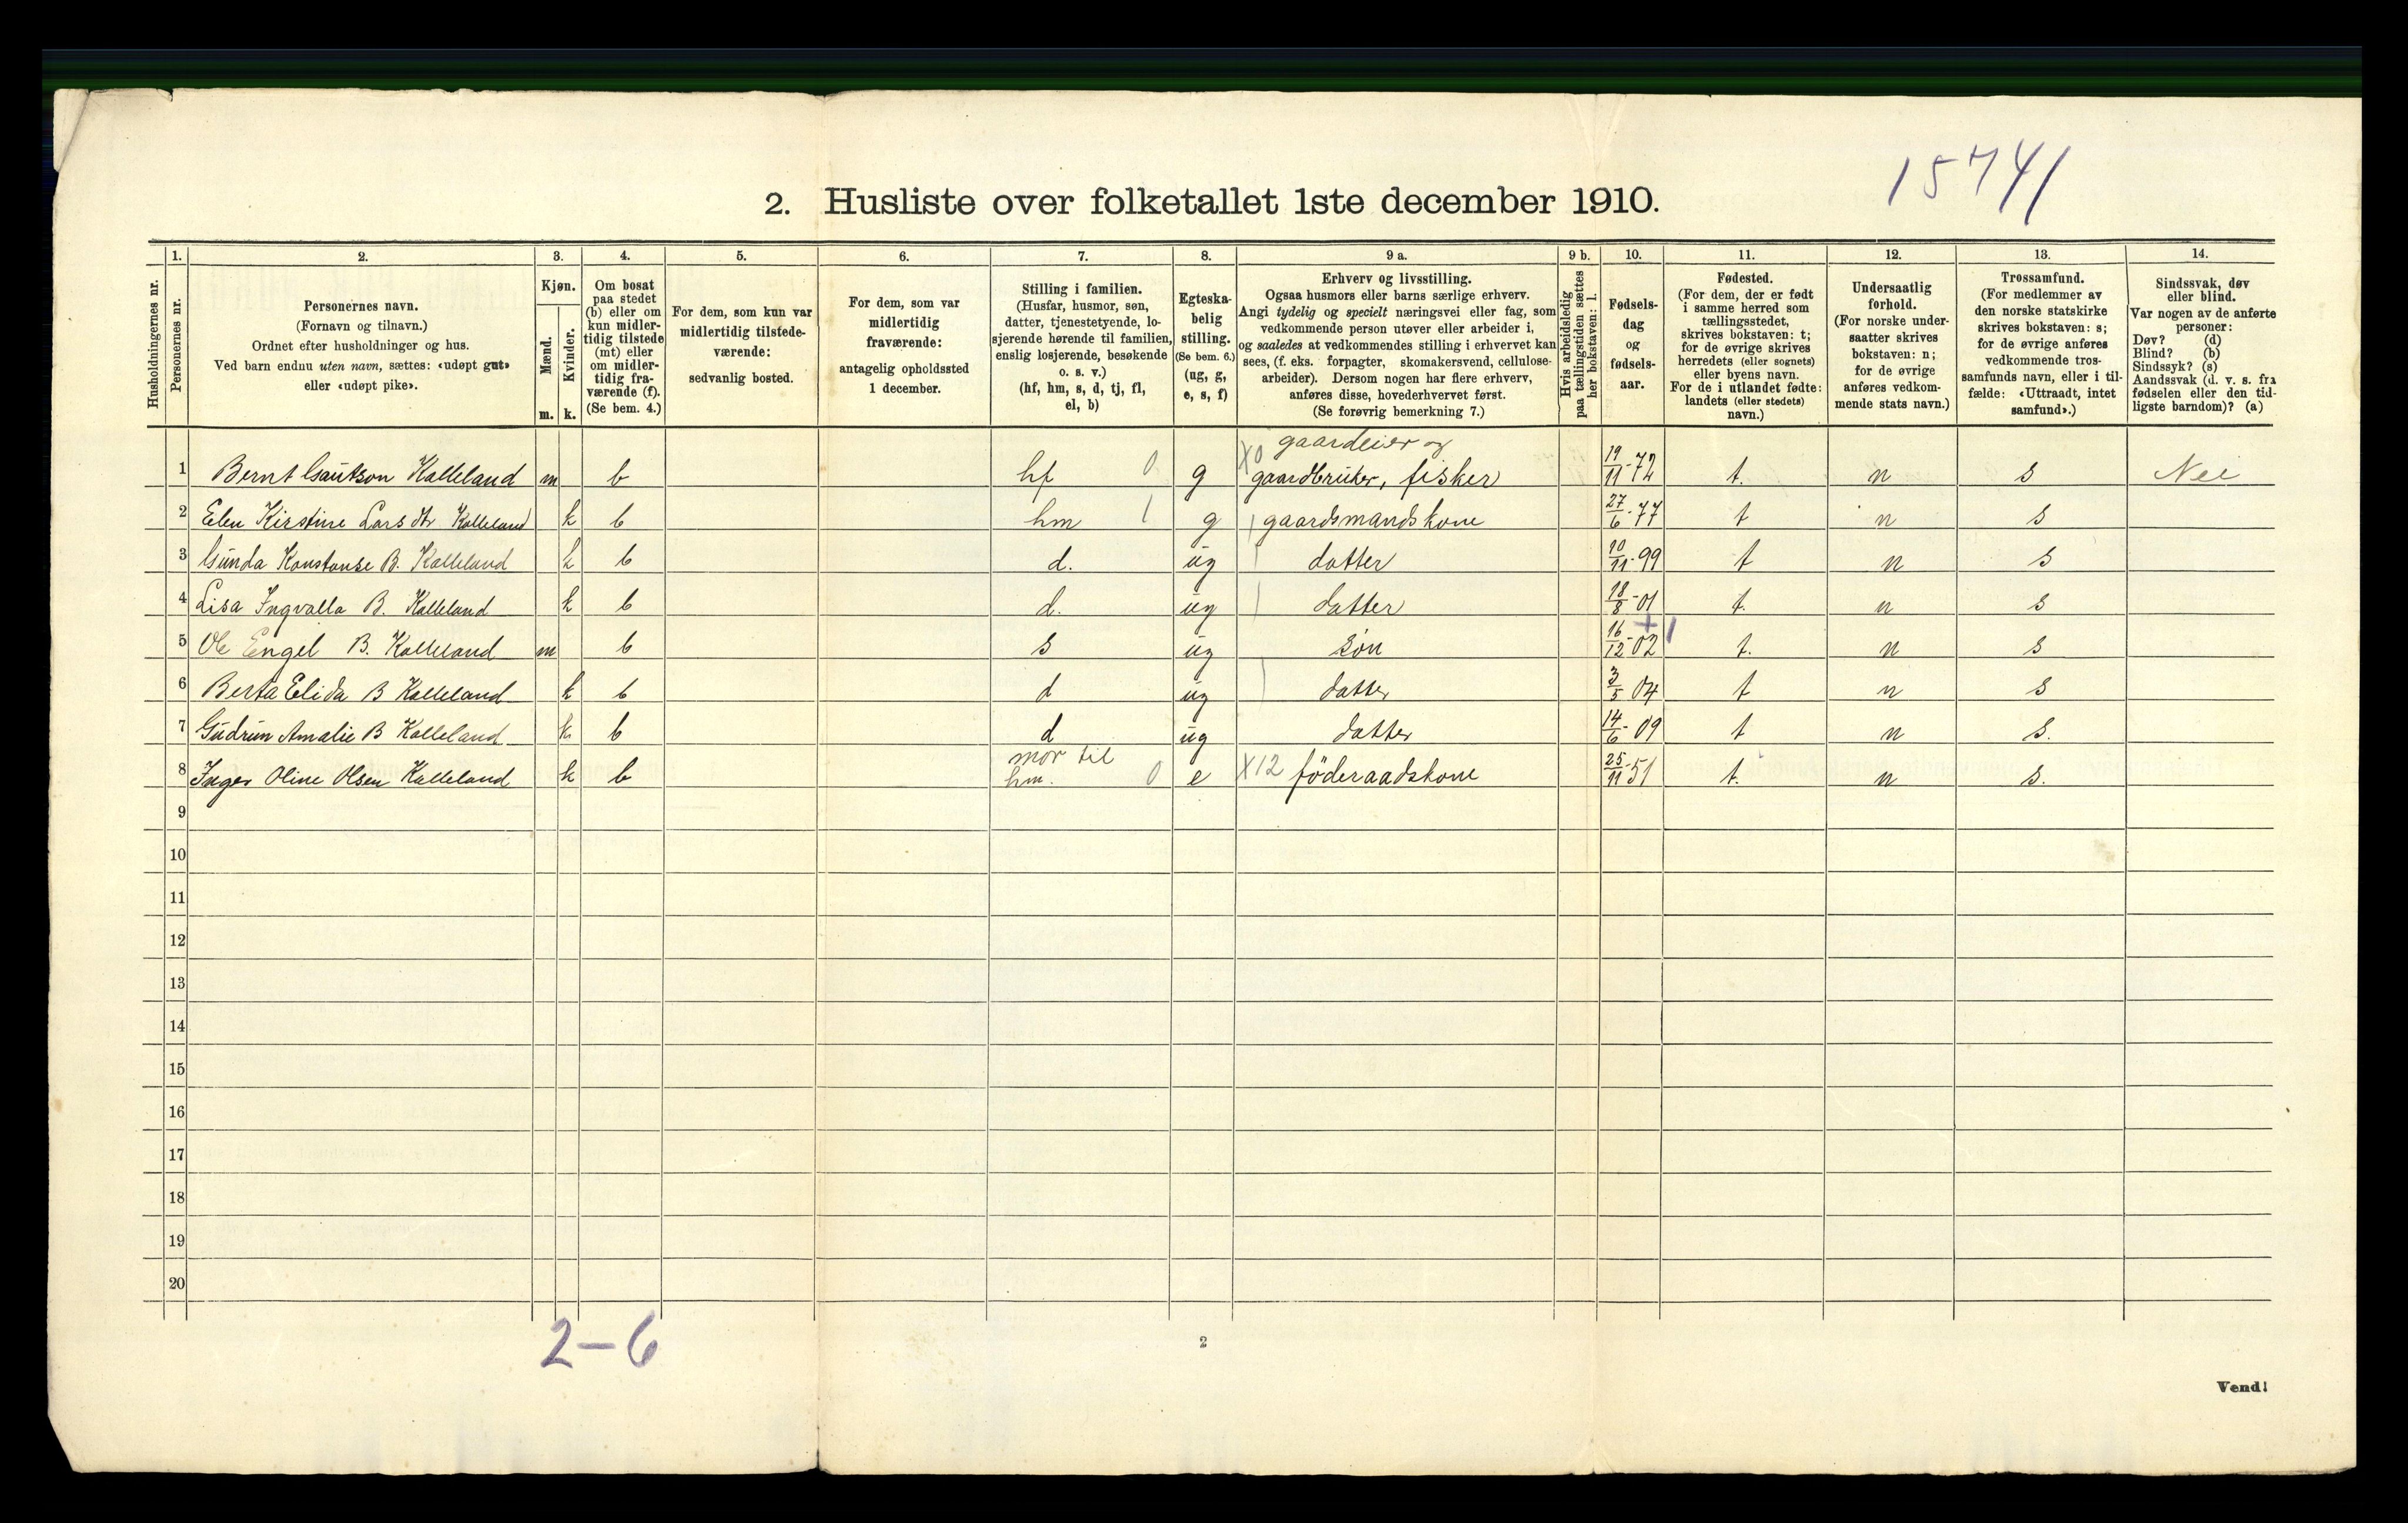 15741
2. Husliste over folketallet 1ste december 1910.
Husholdningernes nr.
1.
Personernes nr.
2.
Personernes navn.
(Fornavn og tilnavn.)
Ordnet efter husholdninger og hus.
Ved barn endnu uten navn, sættes: «udøpt gut»
eller «udøpt pike».
3.
Kjøn.
Mænd.
m.
Kvinder.
k.
4.
Om bosat
paa stedet
(b) eller om
kun midler-
tidig tilstede
(mt) eller
om midler-
tidig fra-
værende (f).
(Se bem. 4.)
5.
For dem, som kun var
midlertidig tilstede-
værende:
sedvanlig bosted.
6.
For dem, som var
midlertidig
fraværende:
antagelig opholdssted
1 december.
7.
Stilling i familien.
(Husfar, husmor, søn,
datter, tjenestetyende, lo-
sjerende hørende til familien,
enslig losjerende, besøkende
o. s. v.)
(hf, hm, s, d, tj, fl,
el, b)
8.
Egteska-
belig
stilling.
(Se bem. 6.)
(ug, g,
e, s, f)
9 a.
Erhverv og livsstilling.
Ogsaa husmors eller barns særlige erhverv.
Angi tydelig og specielt næringsvei eller fag, som
vedkommende person utøver eller arbeider i,
og saaledes at vedkommendes stilling i erhvervet kan
sees, (f. eks. forpagter, skomakersvend, cellulose-
arbeider). Dersom nogen har flere erhverv,
anføres disse, hovederhvervet først.
(Se forøvrig bemerkning 7.)
9 b.
Hvis arbeidsledig
paa tællingstiden sættes
her bokstaven: l.
10.
Fødsels-
dag
og
fødsels-
aar.
11.
Fødested.
(For dem, der er født
i samme herred som
tællingsstedet,
skrives bokstaven: t;
for de øvrige skrives
herredets (eller sognets)
eller byens navn.
For de i utlandet fødte:
landets (eller stedets)
navn.)
12.
Undersaatlig
forhold.
(For norske under-
saatter skrives
bokstaven: n;
for de øvrige
anføres vedkom-
mende stats navn.)
13.
Trossamfund.
(For medlemmer av
den norske statskirke
skrives bokstaven: s;
for de øvrige anføres
vedkommende tros-
samfunds navn, eller i til-
fælde: «Uttraadt, intet
samfund».)
14.
Sindssvak, døv
eller blind.
Var nogen av de anførte
personer:
Døv? (d)
Blind? (b)
Sindssyk? (s)
Aandssvak (d. v. s. fra
fødselen eller den tid-
ligste barndom)? (a)
gaardeier og
1 Bernt Gautson Kalleland m b hf 0 g X0 gaardbruker, fisker 19/11-72 t. n s Nei
2 Elen Kirstine Lars dtr Kalleland k b hm 1 g gaardsmandskone 27/6-77 t n s
3 Gunda Konstanse B. Kalleland k b d. ug datter 10/11-99 t n s
4 Lisa Ingvalla B. Kalleland k b d. ug datter 18/8-01 t. n s
5 Ole Engel B. Kalleland m b s ug søn 16/12-02 t. n s
6 Berta Elida B Kalleland k b d ug datter 3/5 04 t n s
7 Gudrun Amalie B Kalleland k b d ug datter 14/6-09 t n s.
mor til
8 Inger Oline Olsen Kalleland k b hm. 0 e X12 föderaadskone 25/11-51 t. n s.
9
10
11
12
13
14
15
16
17
18
19
20
2-6
2
Vend!